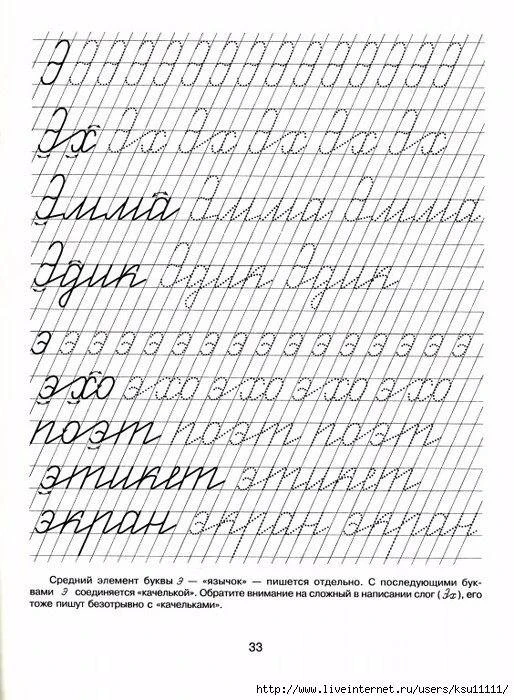 Э Э Э Э Э Э Э Э Э Э Э Э Э Э Э Э
Эх Эх Эх Эх Эх Эх
Эмма Эмма Эмма
Эдик Эдик Эдик
э э э э э э э э э э э э э э э э
эхо эхо эхо эхо эхо
поэт поэт поэт
этикет этикет
экран экран экран
Средний элемент буквы Э — «язычок» — пишется отдельно. С последующими бук-
вами Э соединяется «качелькой». Обратите внимание на сложный в написании слог (Эх), его
тоже пишут безотрывно с «качельками».
33
http://www.liveinternet.ru/users/ksu11111/